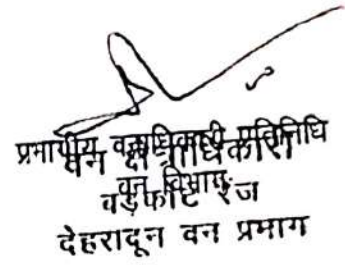 प्रभागीय वनाधिकारी प्रतिनिधि
वन क्षेत्राधिकारी
वन विभाग
रेंज
देहरादून वन प्रभाग